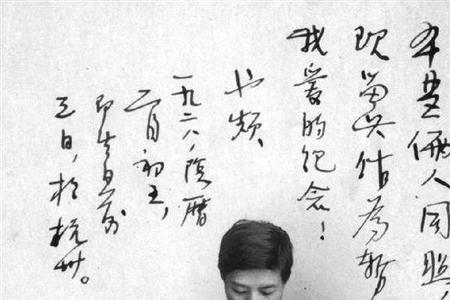 本是俩人同照，
现留 作为
我爱的纪念！
也频，
一九二八，阴历
二月初五，
即生日前
三日，於杭州。